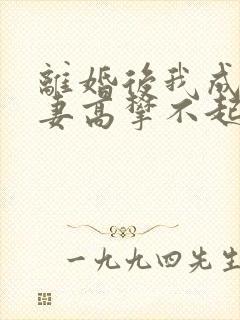 離婚後我成
妻高攀不起
一九九四先生